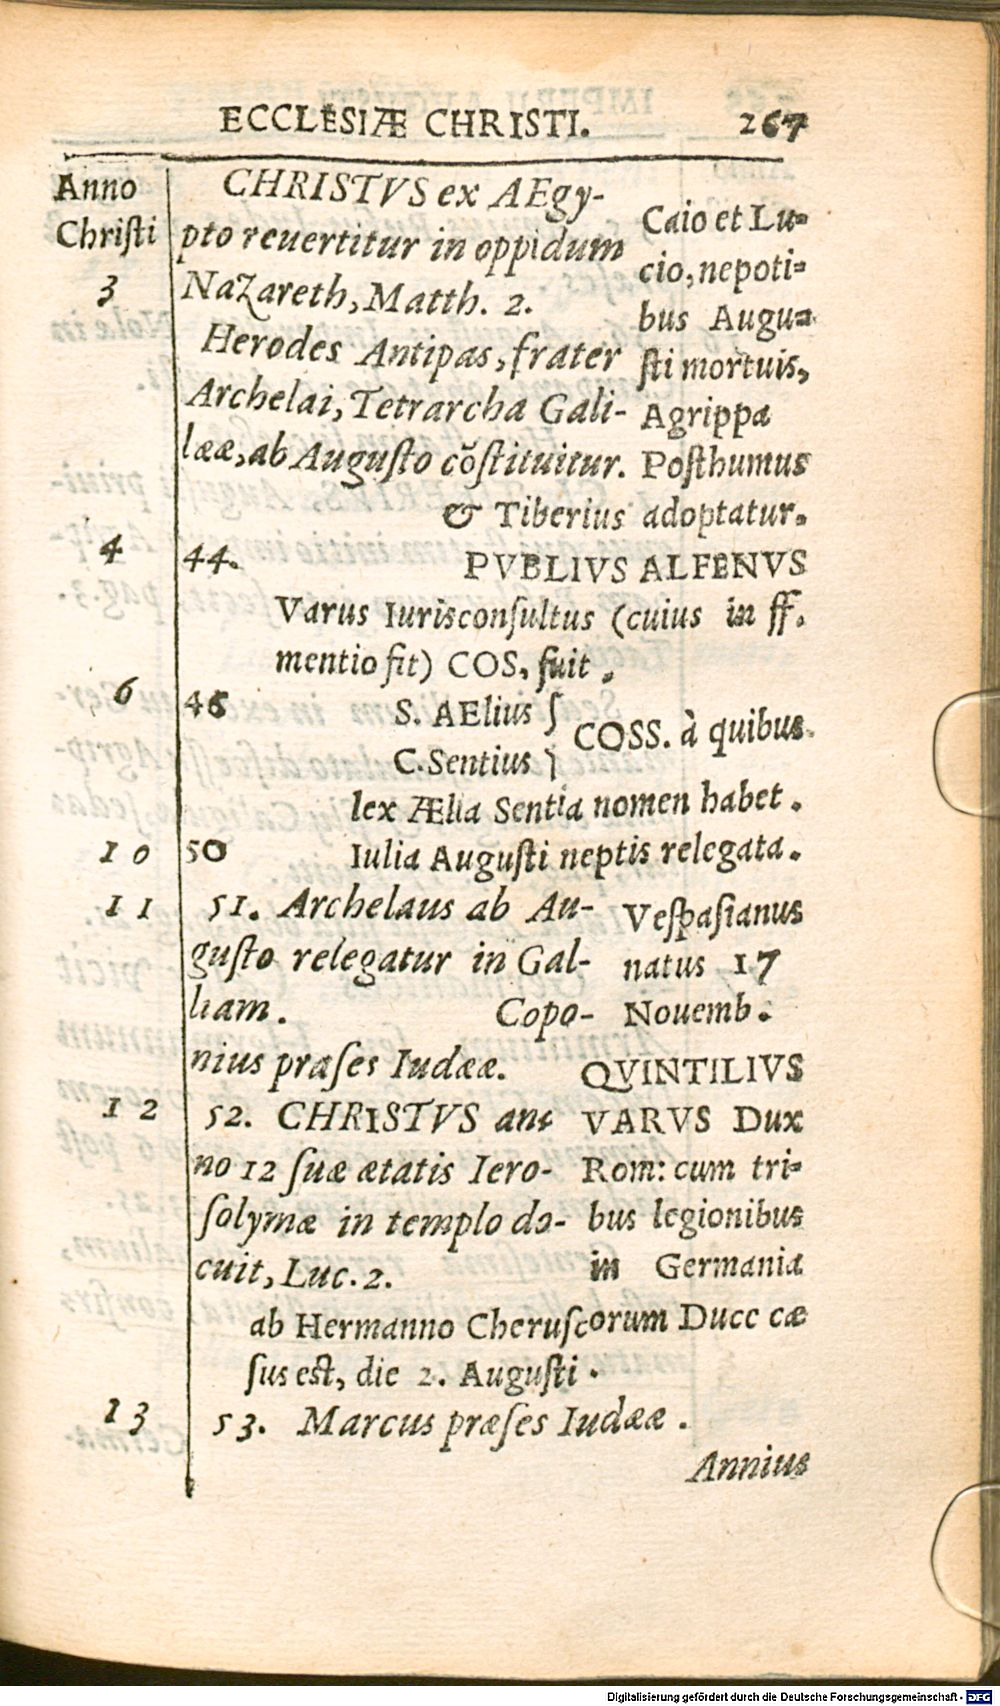 ECCLESIÆ CHRISTI. 267
Anno
Christi
3
CHRISTVS ex AEgy-
pto reuertitur in oppidum
NaZareth, Matth. 2.
Herodes Antipas, frater
Archelai, Tetrarcha Gali-
lææ, ab Augusto cõstituitur.
Caio et Lu-
cio, nepoti-
bus Augu-
sti mortuis,
Agrippa
Posthumus
& Tiberius adoptatur.
4 44. PVBLIVS ALFENVS
Varus Iurisconſultus (cuius in ff.
mentio fit) COS, fuit.
6 46 S. AElius
C. Sentius
COSS. à quibus
lex Ælia Sentia nomen habet.
10 50 Iulia Auguſti neptis relegata.
11 51. Archelaus ab Au-
guſto relegatur in Gal-
liam. Copo-
nius praſes Iudææ.
Veſpaſianus
natus 17
Nouemb.
12 52. CHRISTVS an-
no 12 ſuæ ætatis Iero-
ſolymæ in templo do-
cuit, Luc. 2.
QVINTILIVS
VARVS Dux
Rom: cum tri-
bus legionibus
in Germania
ab Hermanno Cheruſcorum Duce cæ
ſus eſt, die 2. Auguſti.
13 53. Marcus præſes Iudææ.
Annius
Digitalisierung gefördert durch die Deutsche Forschungsgemeinschaft - DFG